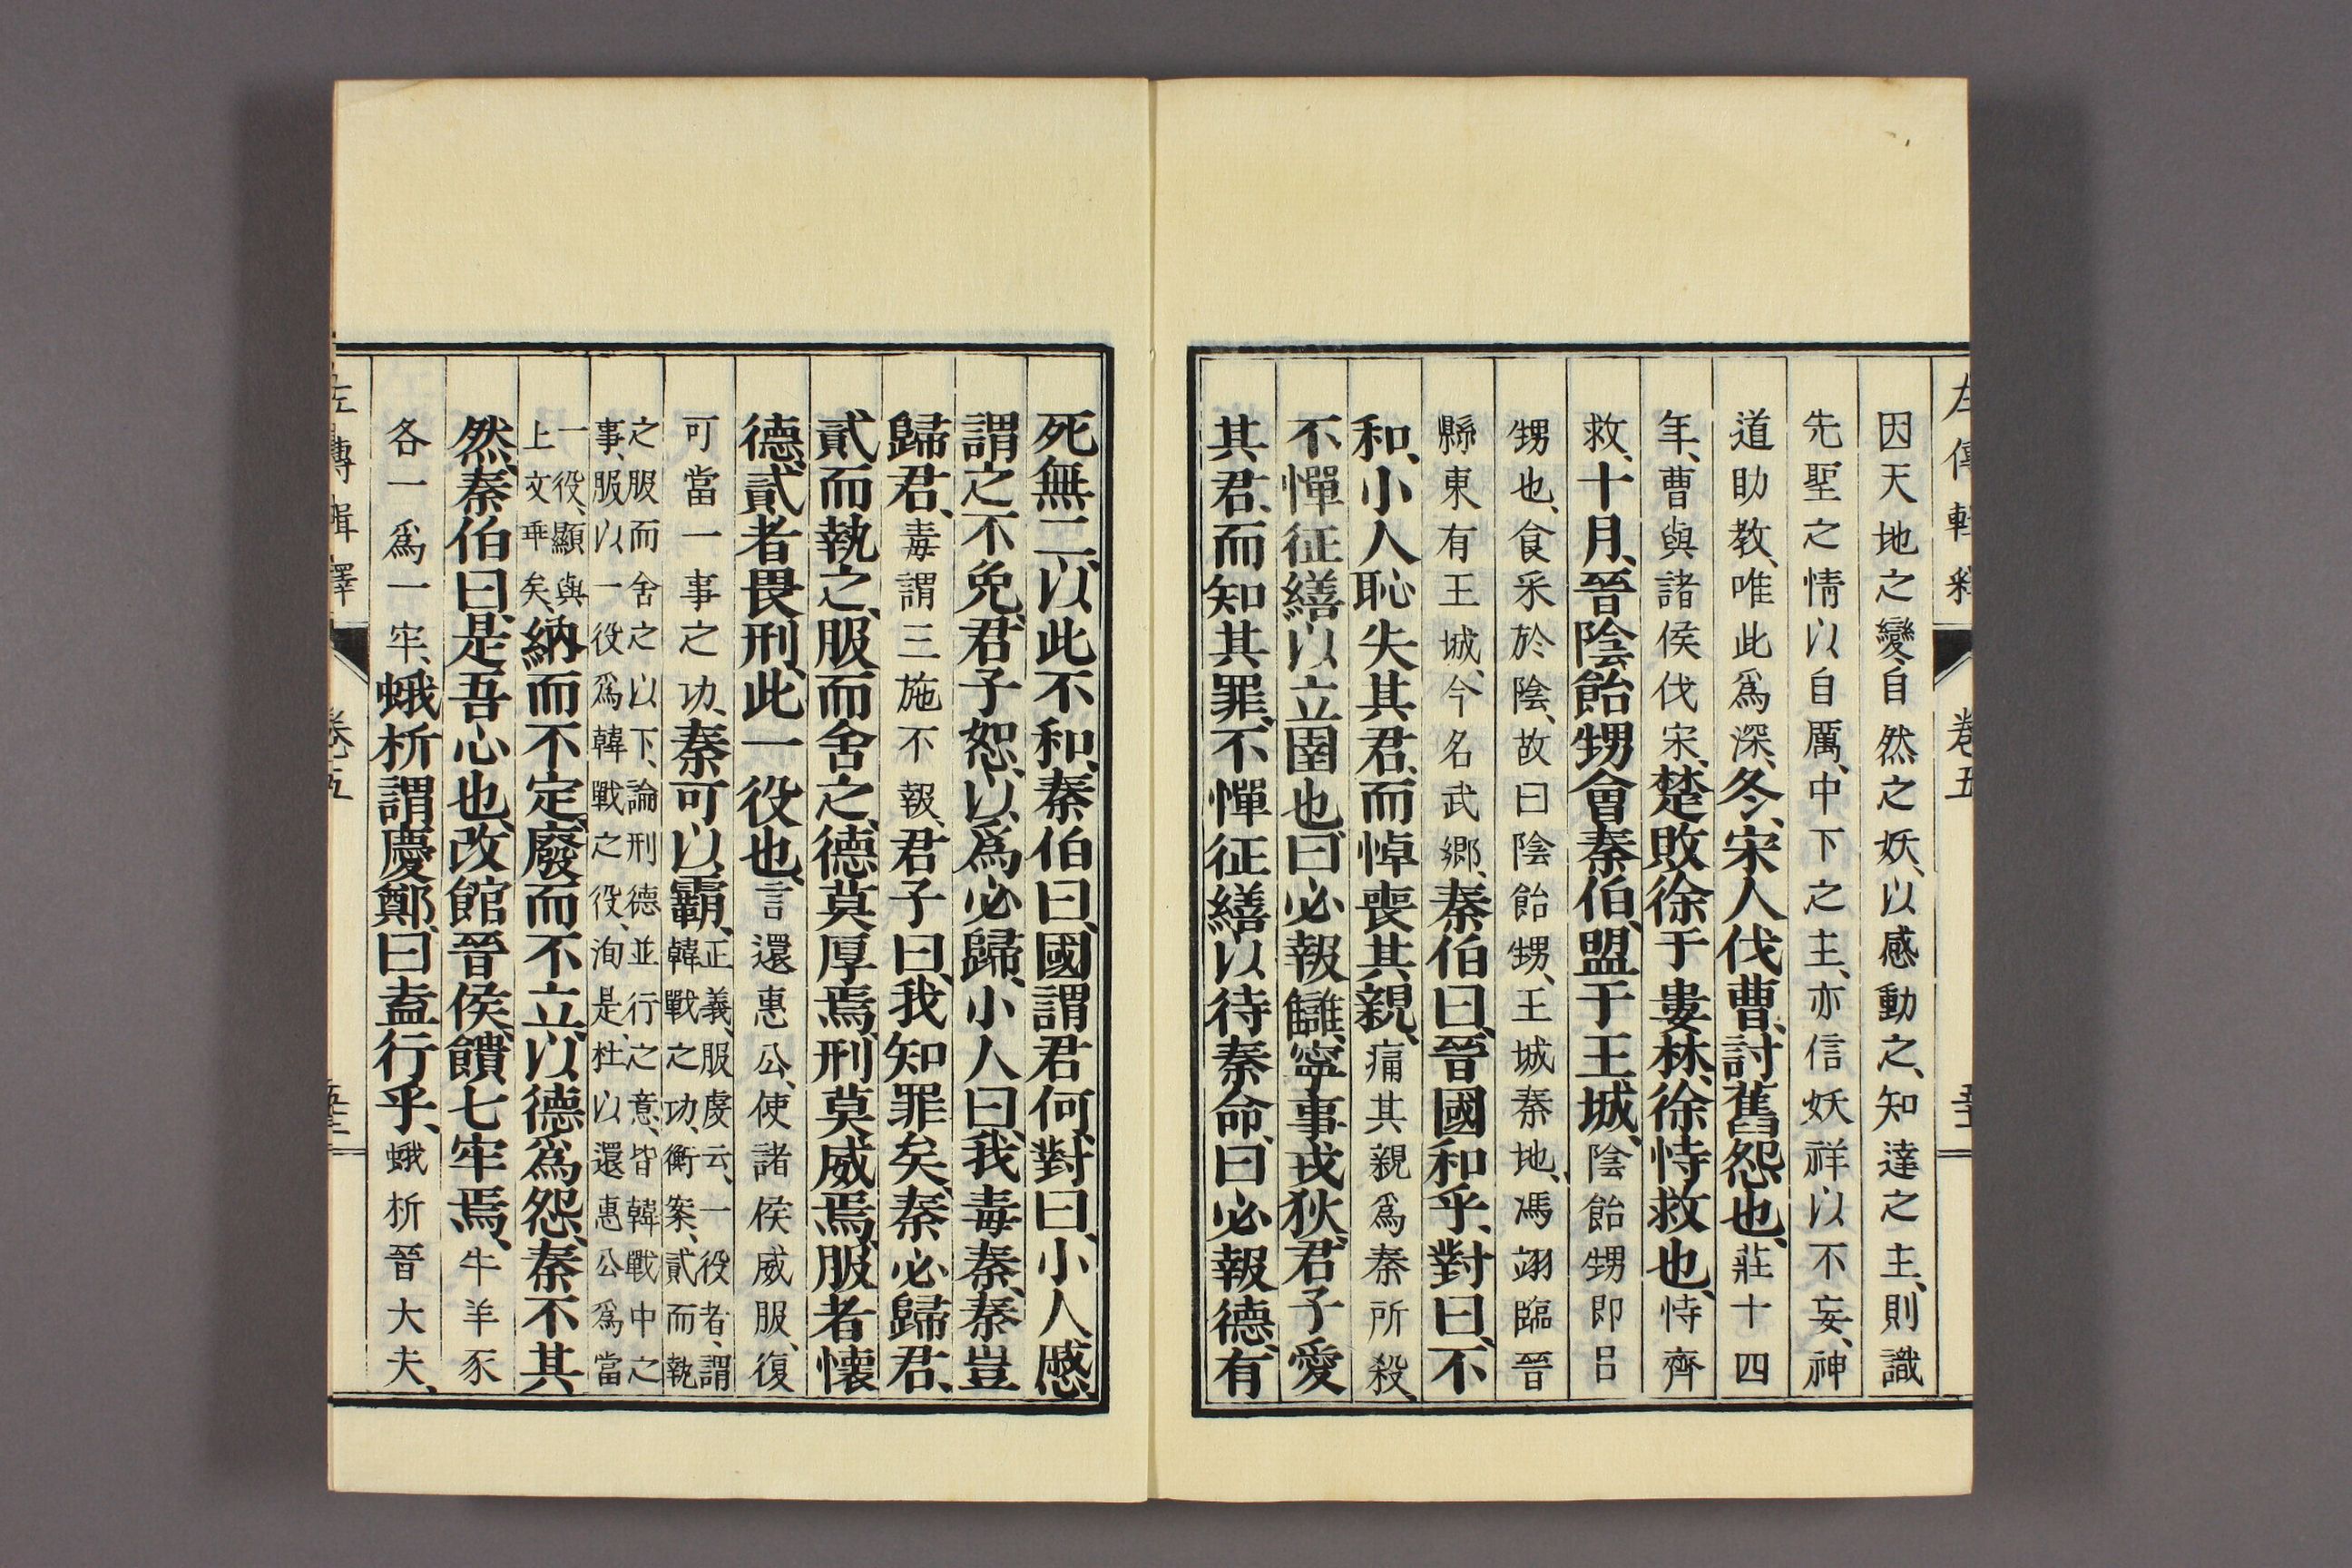 左傳輯釋 卷五
因天地之變自然之妖、以感動之、知達之主、則識
先聖之情以自厲、中下之主、亦信妖祥以不妄、神
道助教、唯此爲深、冬、宋人伐曹、討舊怨也、莊十四
年、曹與諸侯伐宋、楚敗徐于婁林、徐恃救也、恃齊
救、十月、晉陰飴甥會秦伯、盟于王城、陰飴甥即呂
甥也、食采於陰、故曰陰飴甥、王城秦地、馮翊臨晉
縣東有王城、今名武鄉、秦伯曰、晉國和乎、對曰、不
和、小人恥失其君、而悼喪其親、痛其親爲秦所殺、
不憚征繕以立圉也、曰、必報讎、寧事戎狄、君子愛
其君、而知其罪、不憚征繕以待秦命、曰、必報德、有
死無二、以此不和、秦伯曰、國謂君何、對曰、小人慼、
謂之不免、君子恕、以爲必歸、小人曰、我毒秦、秦豈
歸君、毒謂三施不報、君子曰、我知罪矣、秦必歸君、
貳而執之、服而舍之、德莫厚焉、刑莫威焉、服者懷
德、貳者畏刑、此一役也、言還惠公、使諸侯威服、復
可當一事之功、秦可以霸、正義、服虔云、一役者、謂
韓戰之功、衡案、貳而執
之服而舍之以下、論刑德並行之意、皆韓戰中之
事、服以一役爲韓戰之役、洵是、杜以還惠公爲當
一役、顯與
上文乖矣、納而不定、廢而不立、以德爲怨、秦不其
然、秦伯曰、是吾心也、改館晉侯、饋七牢焉、牛羊豕
各一爲一牢、蛾析謂慶鄭、曰、盍行乎、蛾析晉大夫、
左傳輯釋 卷五